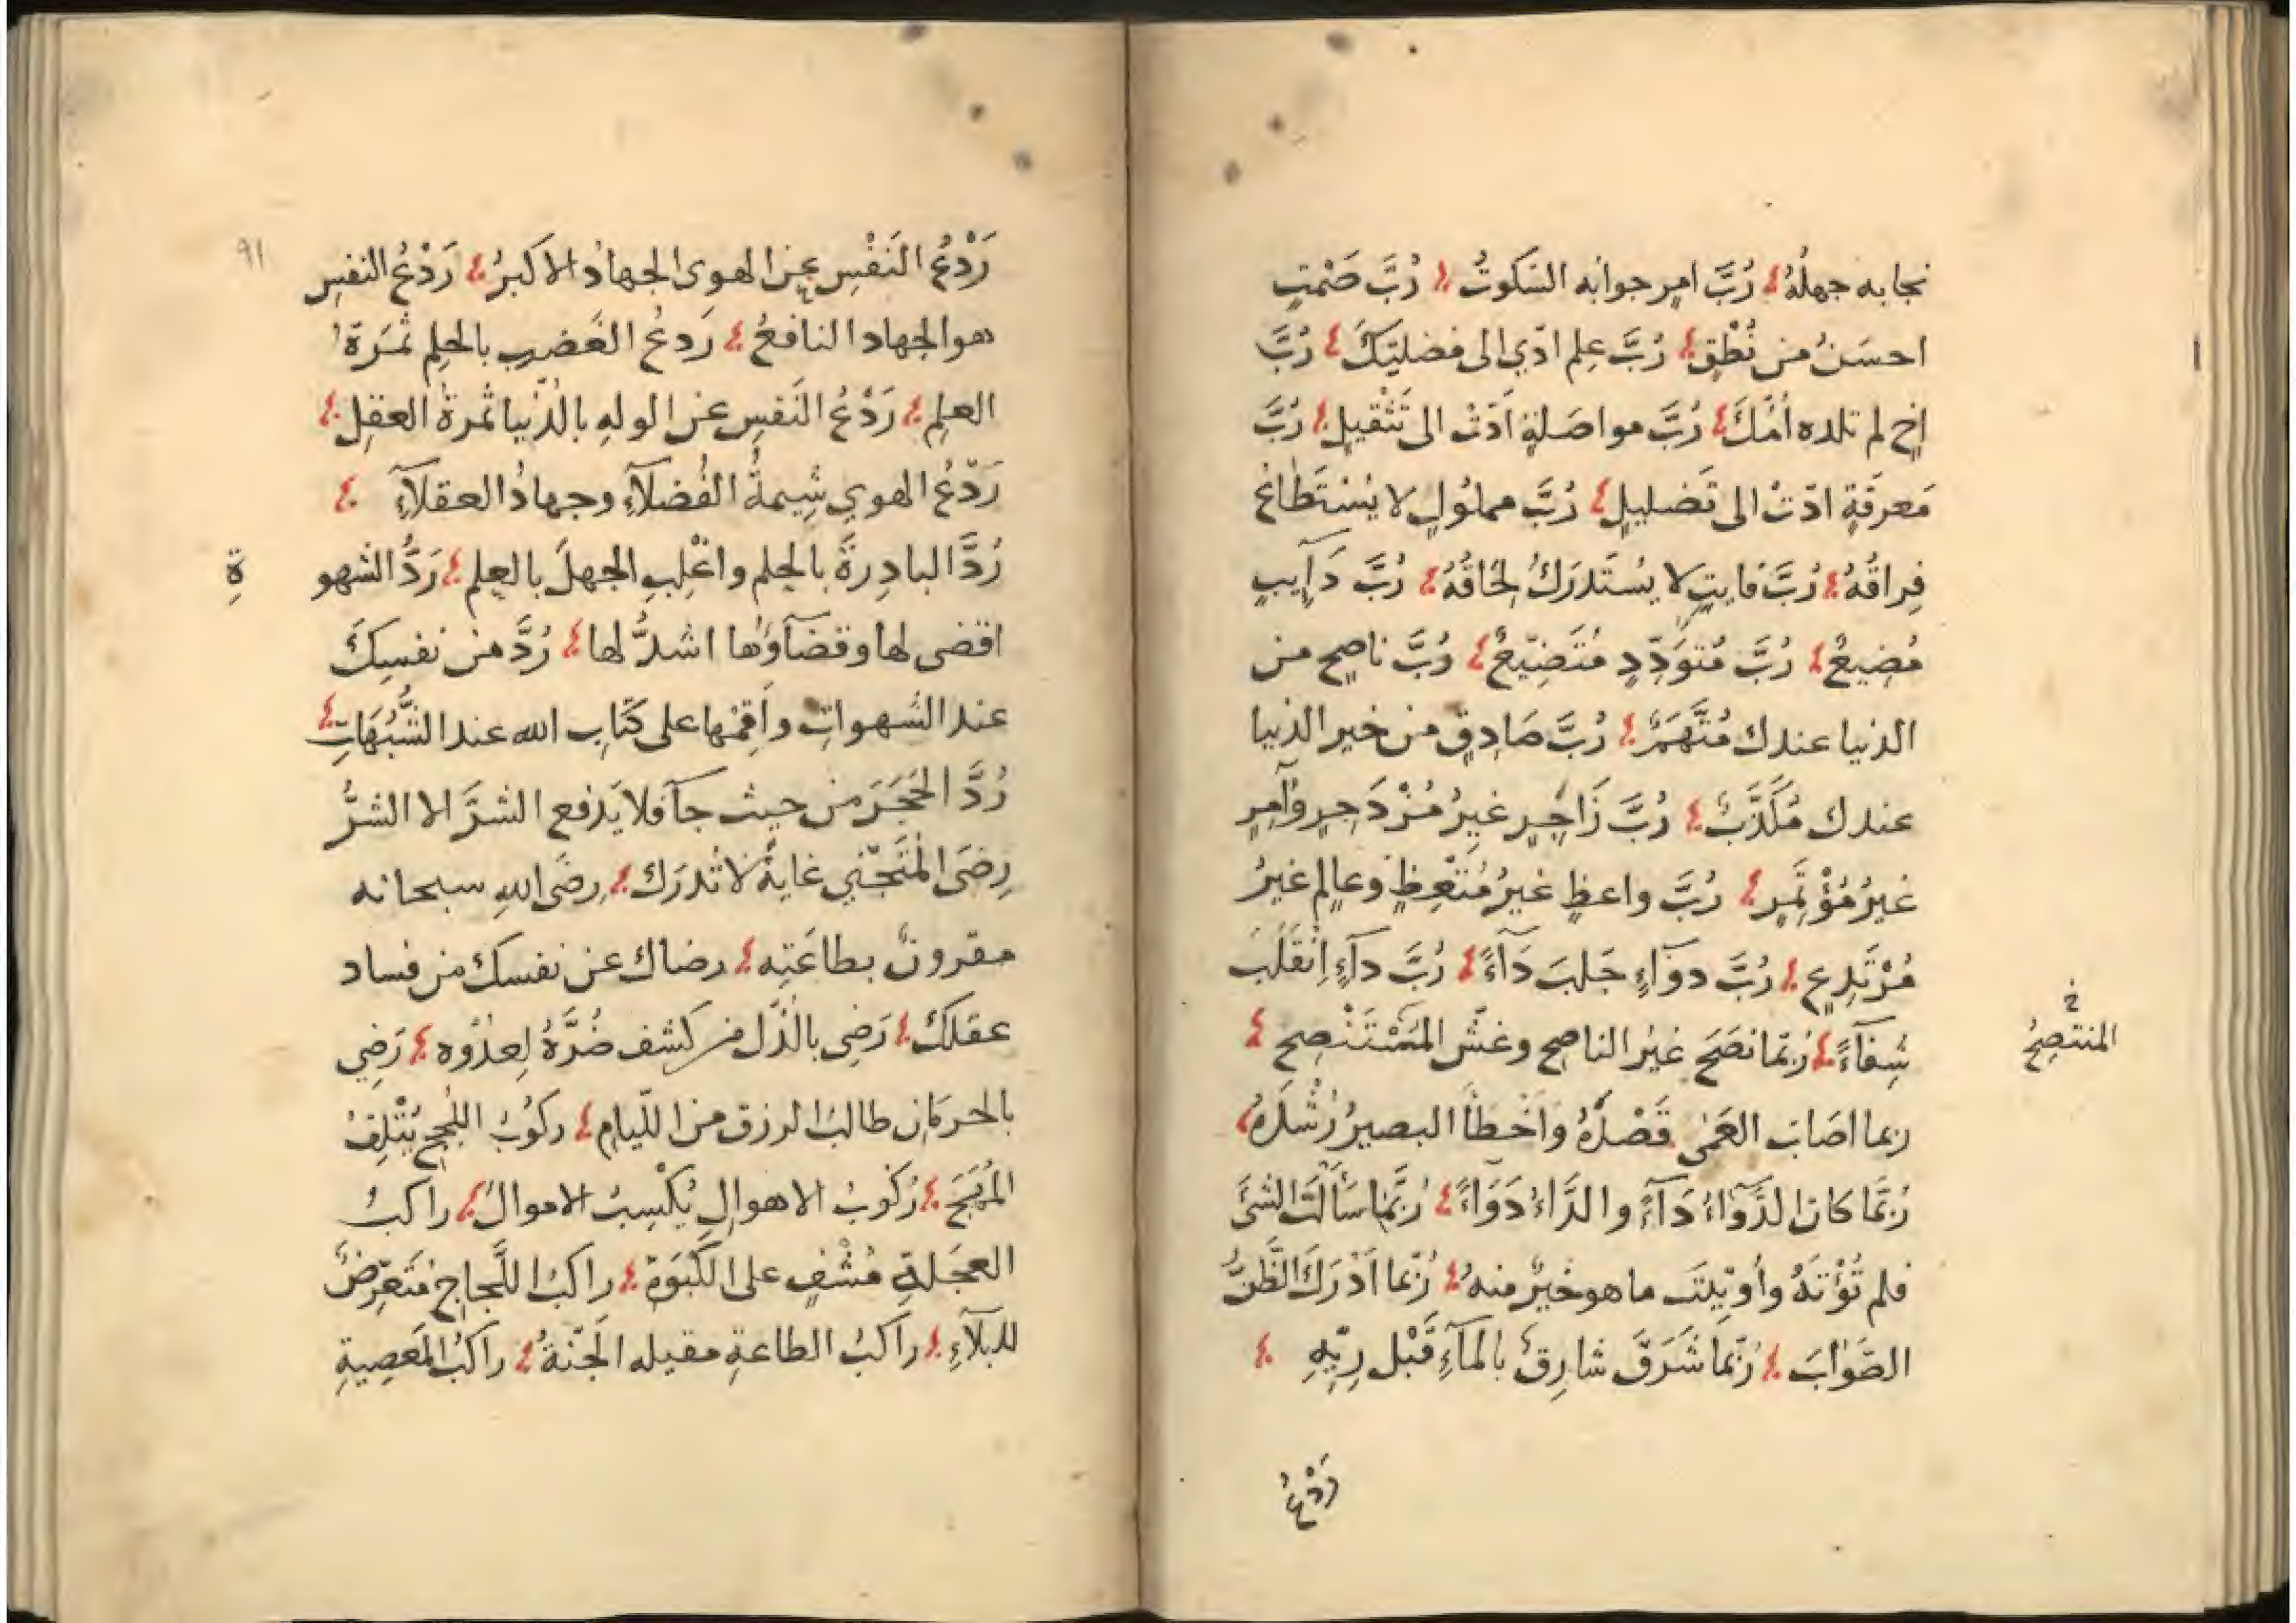 نجابه جهلُهُ رُبَّ امرٍ جوابُه السّكوتُ رُبَّ صَمْتٍ
احسَنُ من نُطْقٍ رُبَّ عِلمٍ ادّي الى مضليّتكَ رُبَّ
اخٍ لم تلده اُمُّكَ رُبَّ مواصَلةٍ اَدّتْ الى تَثْقيلٍ رُبَّ
مَعرفَةٍ ادّتْ الى تَضليلٍ رُبَّ مملوُلٍ لا يُسْتَطَاعُ
فِراقُهُ رُبَّ فايتٍ لا يُسْتَدرَكُ لِحَاقُهُ رُبَّ دَآيِبٍ
مُضيعٌ رُبَّ مُتَوَدِّدٍ مُتَصَنِّعٌ رُبَّ ناصِحٍ من
الدنيا عندك مُتَّهَمٌ رُبَّ صَادِقٍ من خبر الدنيا
عندك مُكَذَّبٌ رُبَّ زَاجِرٍ غيرُ مُزْدَجِرٍ وآمِرٍ
غيرُ مُؤْتَمِرٍ رُبَّ واعظٍ غيرُ مُتّعِظٍ وعالِمٍ غيرُ
مُرْتَدِعٍ رُبَّ دوآءٍ جَلَبَ دَآءً رُبَّ دآءٍ اِنْقَلَبَ
شِفآءً رُبّما نصَحَ غيرُ الناصِحِ وغشَّ المُسْتَنْصِح
خ
المنتصِحُ
ربما اصَابَ العَمىٰ قَصْدَهُ واَخْطَأَ البصيرُ رُشْدَهُ
رُبَّمَا كَانَ الدَّوَآءُ دَآءً والدَّاءُ دَوَآءً رُبَّمَا سَأَلْتَ الشئَ
فلم تُؤْتَهُ وأُوتِيتَ ما هو خيرٌ منهُ رُبّما اَدْرَكَ الظّنُّ
الصَّوَابَ رُبّما شَرَقَ شارِقٌ بالمآءِ قَبْلَ رِيِّهِ
رَدْعُ
٩١
رَدْعُ النَفْسِ عن الهوى الجهادُ الاكبرُ رَدْعُ النفسِ
هو الجهاد النافعُ رَدعُ الغَضبِ بالحلِم ثَمَرَةُ
العلِم رَدْعُ النّفسِ عن الولهِ بالدُّنيا ثمرةُ العقلِ
رَدْعُ الهوي شِيمةُ الفُضلآءِ وجهادُ العقلآءِ
رُدَّ البادِرةَ بالحلِم واغْلِبِ الجهلَ بالعِلم رَدُّ الشهو
ةِ
اقضى لها وقضآؤها اشدُّ لها رُدَّ من نفسِكَ
عند الشهواتِ واَقِمْها على كتابِ الله عند الشُّبُهَاتِ
رُدَّ الحَجَرَ من حيث جآ فلا يَدفع الشرَّ الا الشرُّ
رِضَى المُتَجَنّي غايةٌ لا تُدرَك رِضَى اللهِ سبحانه
مقرونٌ بطاعَتِه رضاك عن نفسك من فساد
عقلكَ رَضِى بالذّل من كشف ضُرَّهُ لِعدُوّه رَضِي
بالحرمَانِ طالبُ الرزق من اللّيامِ ركوُبُ اللُّججِ يُتْلِفُ
المُهَجَ رُكوبُ الاهوالِ يُكْسِبُ الاموالَ راكبُ
العجَلةِ مُشْفٍ على الكَبْوَةِ راكبُ اللَّجاجِ مُتَعرِّضٌ
للبلآءِ راكبُ الطاعةِ مقيله الجَنّةُ راكبُ المَعصِيةِ